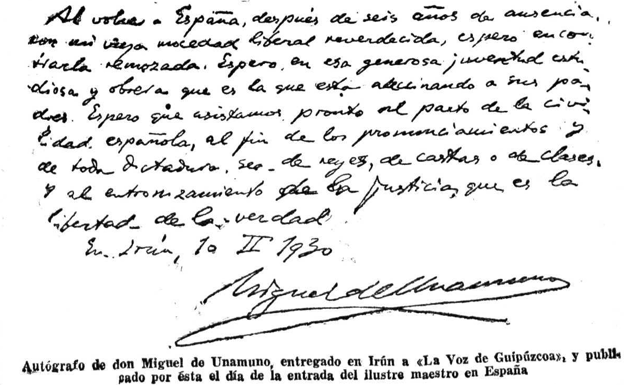 Al volver a España, después de seis años de ausencia,
con mi vieja mocedad liberal reverdecida, espero encon
trarla remozada. Espero en esa generosa juventud estu
diosa y obrera que es la que está aleccionando a sus pa
dres. Espero que asistamos pronto al parto de la civi
lidad española, al fin de los pronunciamientos y
de toda dictadura, sea de reyes, de castas o de clases,
y al entronizamiento de la justicia, que es la
libertad de la verdad.
En Irún, 10 II 1930
Miguel de Unamuno
Autógrafo de don Miguel de Unamuno, entregado en Irún a «La Voz de Guipúzcoa», y publi-
cado por ésta el día de la entrada del ilustre maestro en España